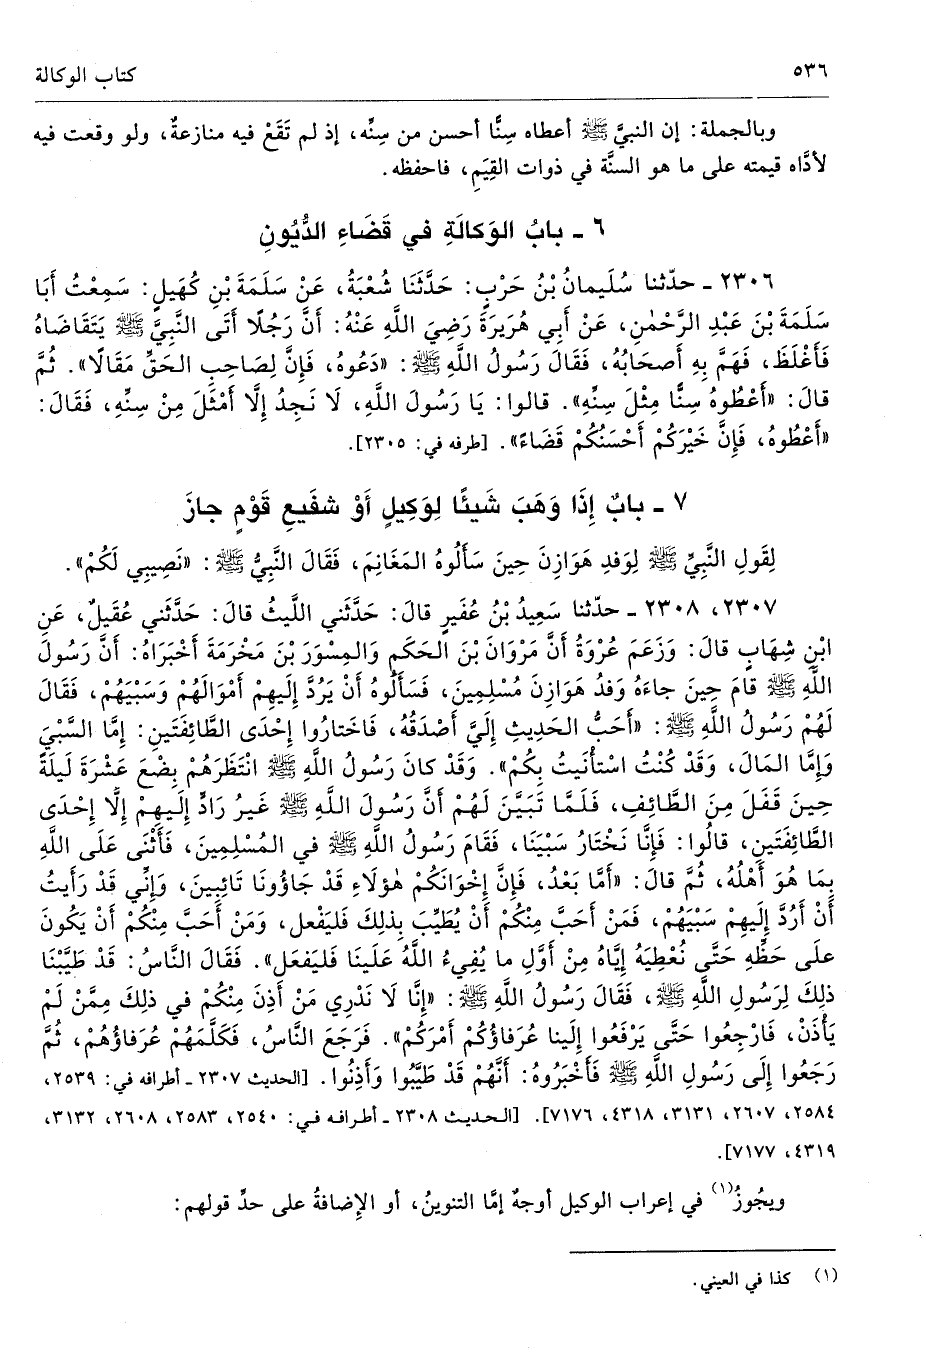 ٥٣٦ كتاب الوكالة
وبالجملة: إن النبيَّ ﷺ أعطاه سِنًّا أحسن من سِنِّه، إذ لم تَقَعْ فيه منازعةٌ، ولو وقعت فيه
لأدَّاه قيمته على ما هو السنَّة في ذوات القِيَمِ، فاحفظه.
٦ ـ بابُ الوَكالَةِ في قَضَاءِ الدُّيُونِ
٢٣٠٦ ـ حدّثنا سُلَيمانُ بْنُ حَرْبٍ: حَدَّثَنَا شُعْبَةُ، عَنْ سَلَمَةَ بْنِ كُهَيلٍ: سَمِعْتُ أَبَا
سَلَمَةَ بْنَ عَبْدِ الرَّحْمٰنِ، عَنْ أَبِي هُرَيرَةَ رَضِيَ اللَّهُ عَنْهُ: أَنَّ رَجُلًا أَتَى النَّبِيَّ ﷺ يَتَقَاضَاهُ
فَأَغْلَظَ، فَهَمَّ بِهِ أَصحَابُهُ، فَقَالَ رَسُولُ اللَّهِ ﷺ: «دَعُوهُ، فَإِنَّ لِصَاحِبِ الحَقِّ مَقَالًا». ثُمَّ
قالَ: «أَعْطُوهُ سِنًّا مِثْلَ سِنِّهِ». قالوا: يَا رَسُولَ اللَّهِ، لَا نَجِدُ إِلَّا أَمْثَلَ مِنْ سِنِّهِ، فَقَالَ:
«أَعْطُوهُ، فَإِنَّ خَيْرَكُمْ أَحْسَنُكُمْ قَضَاءً». [طرفه في: ٢٣٠٥].
٧ ـ بابٌ إِذَا وَهَبَ شَيئًا لِوَكِيلٍ أَوْ شفَيعِ قَوْمٍ جازَ
لِقَولِ النَّبِيِّ ﷺ لِوَفدِ هَوَازِنَ حِينَ سَأَلُوهُ المَغَانِمَ، فَقَالَ النَّبِيُّ ﷺ: «نَصِيبِي لَكُمْ».
٢٣٠٧، ٢٣٠٨ ـ حدّثنا سَعِيدُ بْنُ عُفَيرٍ قالَ: حَدَّثَنِي اللَّيثُ قالَ: حَدَّثَنِي عُقَيلٌ، عَنِ
ابْنِ شِهَابٍ قالَ: وَزَعَمَ عُرْوَةُ أَنَّ مَرْوَانَ بْنَ الحَكَمِ وَالمِسْوَرَ بْنَ مَخْرَمَةَ أَخْبَرَاهُ: أَنَّ رَسُولَ
اللَّهِ ﷺ قامَ حِينَ جاءَهُ وَفدُ هَوَازِنَ مُسْلِمِينَ، فَسَأَلُوهُ أَنْ يَرُدَّ إِلَيهِمْ أَمْوَالَهُمْ وَسَبْيَهُمْ، فَقَالَ
لَهُمْ رَسُولُ اللَّهِ ﷺ: «أَحَبُّ الحَدِيثِ إِلَيَّ أَصْدَقُهُ، فَاختارُوا إِحْدَى الطَّائِفَتَينِ: إِمَّا السَّبْيَ
وَإِمَّا المَالَ، وَقَدْ كُنْتُ اسْتَأْنَيتُ بِكُمْ». وَقَدْ كانَ رَسُولُ اللَّهِ ﷺ انْتَظَرَهُمْ بِضْعَ عَشْرَةَ لَيلَةً
حِينَ قَفَلَ مِنَ الطَّائِفِ، فَلَمَّا تَبَيَّنَ لَهُمْ أَنَّ رَسُولَ اللَّهِ ﷺ غَيرُ رَادٍّ إِلَيهِمْ إِلَّا إِحْدَى
الطَّائِفَتَينِ، قالُوا: فَإِنَّا نَخْتَارُ سَبْيَنَا، فَقَامَ رَسُولُ اللَّهِ ﷺ في المُسْلِمِينَ، فَأَثْنَى عَلَى اللَّهِ
بِمَا هُوَ أَهْلُهُ، ثُمَّ قالَ: «أَمَّا بَعْدُ، فَإِنَّ إِخْوَانَكُمْ هٰؤلَاءِ قَدْ جَاؤُونَا تَائِبِينَ، وَإِنِّي قَدْ رَأَيتُ
أَنْ أَرُدَّ إِلَيهِمْ سَبْيَهُمْ، فَمَنْ أَحَبَّ مِنْكُمْ أَنْ يُطَيِّبَ بِذلِكَ فَليَفْعل، وَمَنْ أَحَبَّ مِنْكُمْ أَنْ يَكُونَ
علَى حَظِّهِ حَتَّى نُعْطِيَهُ إِيَّاهُ مِنْ أَوَّلِ ما يُفِيءُ اللَّهُ عَلَينَا فَليَفعَل». فَقَالَ النَّاسُ: قَدْ طَيَّبْنَا
ذلِكَ لِرَسُولِ اللَّهِ ﷺ، فَقَالَ رَسُولُ اللَّهِ ﷺ: «إِنَّا لَا نَدْرِي مَنْ أَذِنَ مِنْكُمْ في ذلِكَ مِمَّنْ لَمْ
يَأْذَنْ، فَارْجِعُوا حَتَّى يَرْفَعُوا إِلَينا عُرَفاؤُكُمْ أَمْرَكُمْ». فَرَجَعَ النَّاسُ، فَكَلَّمَهُمْ عُرَفاؤُهُمْ، ثُمَّ
رَجَعُوا إِلَى رَسُولِ اللَّهِ ﷺ فَأَخْبَرُوهُ: أَنَّهُمْ قَدْ طَيَّبُوا وَأَذِنُوا. [الحديث ٢٣٠٧ ـ أطرافه في: ٢٥٣٩،
٢٥٨٤، ٢٦٠٧، ٣١٣١، ٤٣١٨، ٧١٧٦]. [الحديث ٢٣٠٨ ـ أطرافه في: ٢٥٤٠، ٢٥٨٣، ٢٦٠٨، ٣١٣٢،
٤٣١٩، ٧١٧٧].
ويجُوزُ(١) في إعراب الوكيل أوجهٌ إمَّا التنوينُ، أو الإِضافةُ على حدِّ قولهم:
(١) كذا في العيني.